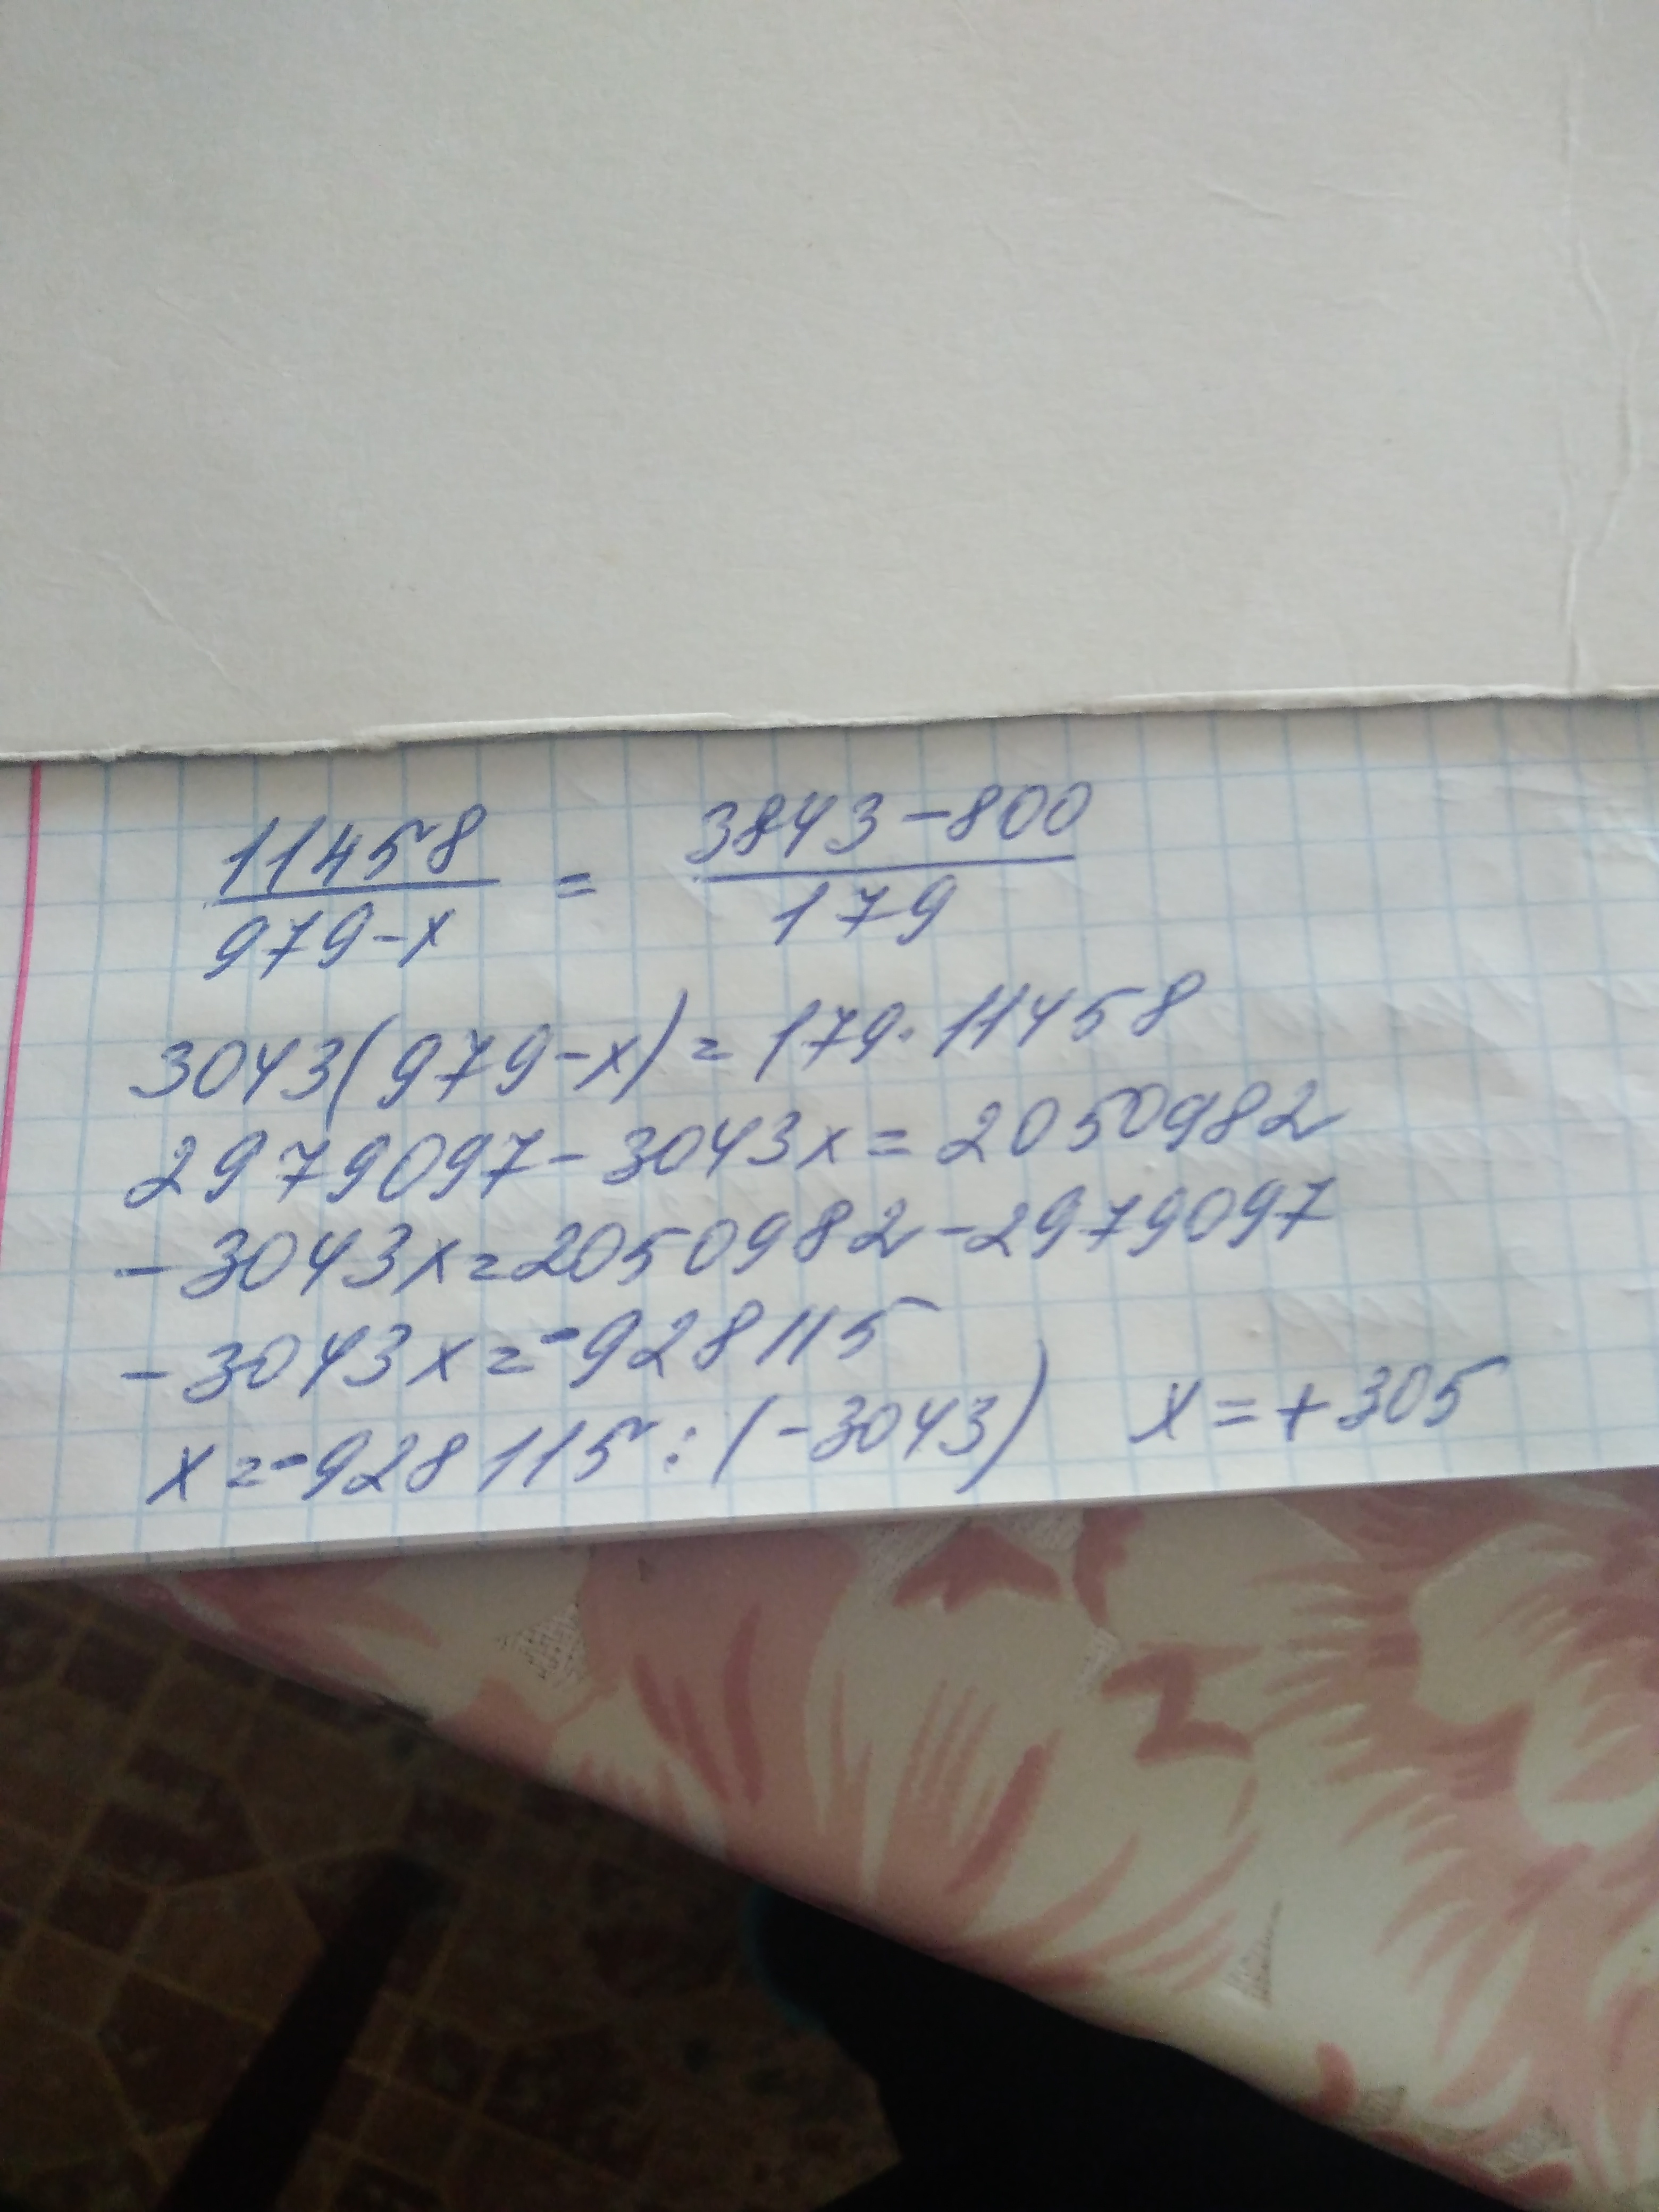 11458/(979-x) = (3843-800)/179
3043(979-x)=179·11458
2979097-3043x=2050982
-3043x=2050982-2979097
-3043x=-928115
x=-928115:(-3043) x=+305